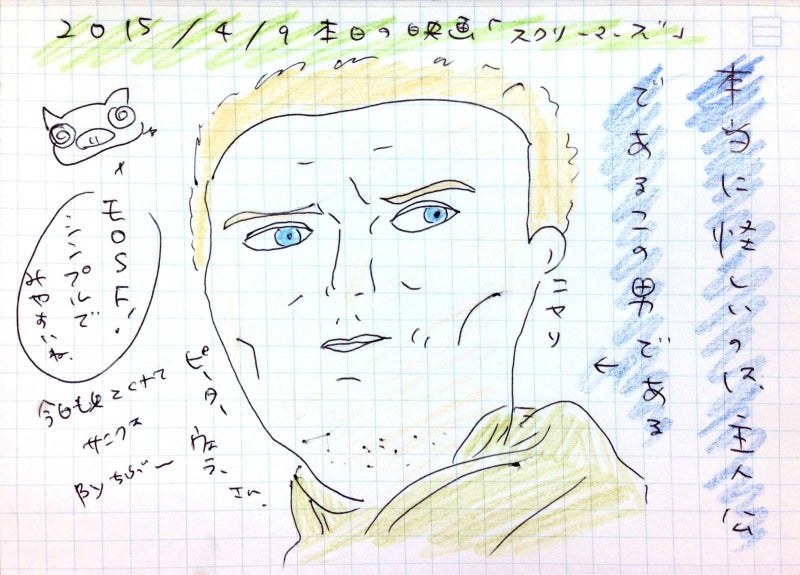 2015/4/9 本日の映画「スクリーマーズ」
本当に怪しいのは、主人公
であるこの男である
←
ニヤリ
ピーター ウェラー Jr.
モロSF!
シンプルで
みやすいね。
今日も見てくれて
サンクス
Byちぶー